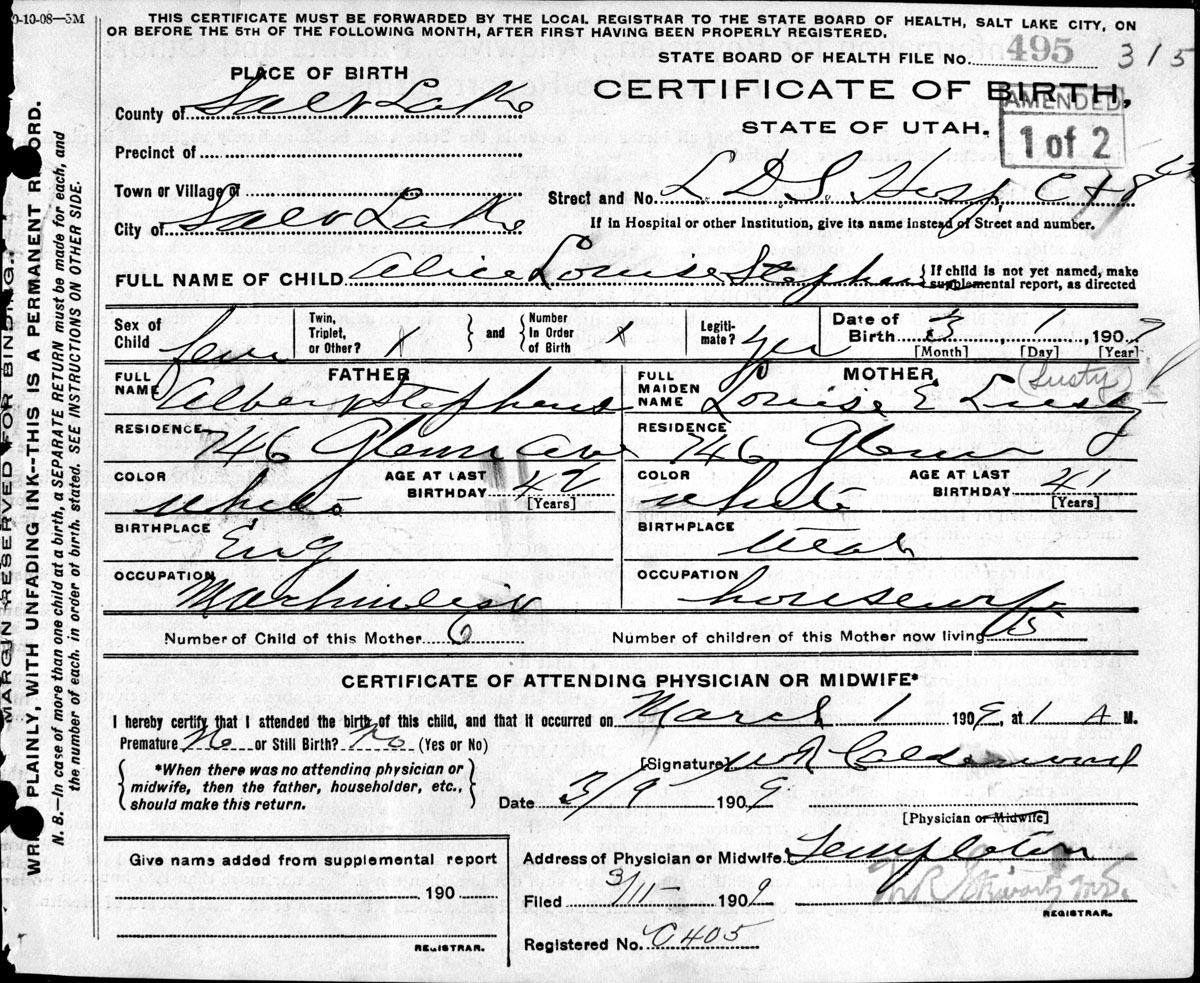 0-10-08—3M
THIS CERTIFICATE MUST BE FORWARDED BY THE LOCAL REGISTRAR TO THE STATE BOARD OF HEALTH, SALT LAKE CITY, ON
OR BEFORE THE 5TH OF THE FOLLOWING MONTH, AFTER FIRST HAVING BEEN PROPERLY REGISTERED.
STATE BOARD OF HEALTH FILE No. 495 315
PLACE OF BIRTH
CERTIFICATE OF BIRTH,
AMENDED
1 of 2
STATE OF UTAH.
County of Salt Lake
Precinct of
Town or Village of
Street and No. L D S Hosp, C & 8
City of Salt Lake
If in Hospital or other Institution, give its name instead of Street and number.
FULL NAME OF CHILD Alice Louise Stephens { If child is not yet named, make
supplemental report, as directed
Sex of Child Fem
Twin, Triplet, or Other? 1 } and { Number In Order of Birth
Legiti- mate? yes
Date of Birth 3, 1, 1909
[Month] [Day] [Year]
FATHER
FULL NAME Albert Stephens
RESIDENCE 746 Glenn Ave
COLOR White
AGE AT LAST BIRTHDAY 42
[Years]
BIRTHPLACE Eng
OCCUPATION Machinist
MOTHER
(Lusty)
FULL MAIDEN NAME Louise E Lusty
RESIDENCE 746 Glenn
COLOR White
AGE AT LAST BIRTHDAY 41
[Years]
BIRTHPLACE Utah
OCCUPATION housewife
Number of Child of this Mother 6
Number of children of this Mother now living 5
CERTIFICATE OF ATTENDING PHYSICIAN OR MIDWIFE*
I hereby certify that I attended the birth of this child, and that it occurred on March 1 1909, at 1 A M.
Premature No or Still Birth? No (Yes or No)
{ *When there was no attending physician or
midwife, then the father, householder, etc.,
should make this return. }
[Signature] W R Calderwood
Date 3/9 1909
[Physician or Midwife]
Give name added from supplemental report
190
REGISTRAR.
Address of Physician or Midwife Templeton
Filed 3/11 1909
M.D.
REGISTRAR.
Registered No. C405
MARGIN RESERVED FOR BINDING.
WRITE PLAINLY, WITH UNFADING INK--THIS IS A PERMANENT RECORD.
N. B.—In case of more than one child at a birth, a SEPARATE RETURN must be made for each, and
the number of each, in order of birth, stated. SEE INSTRUCTIONS ON OTHER SIDE.